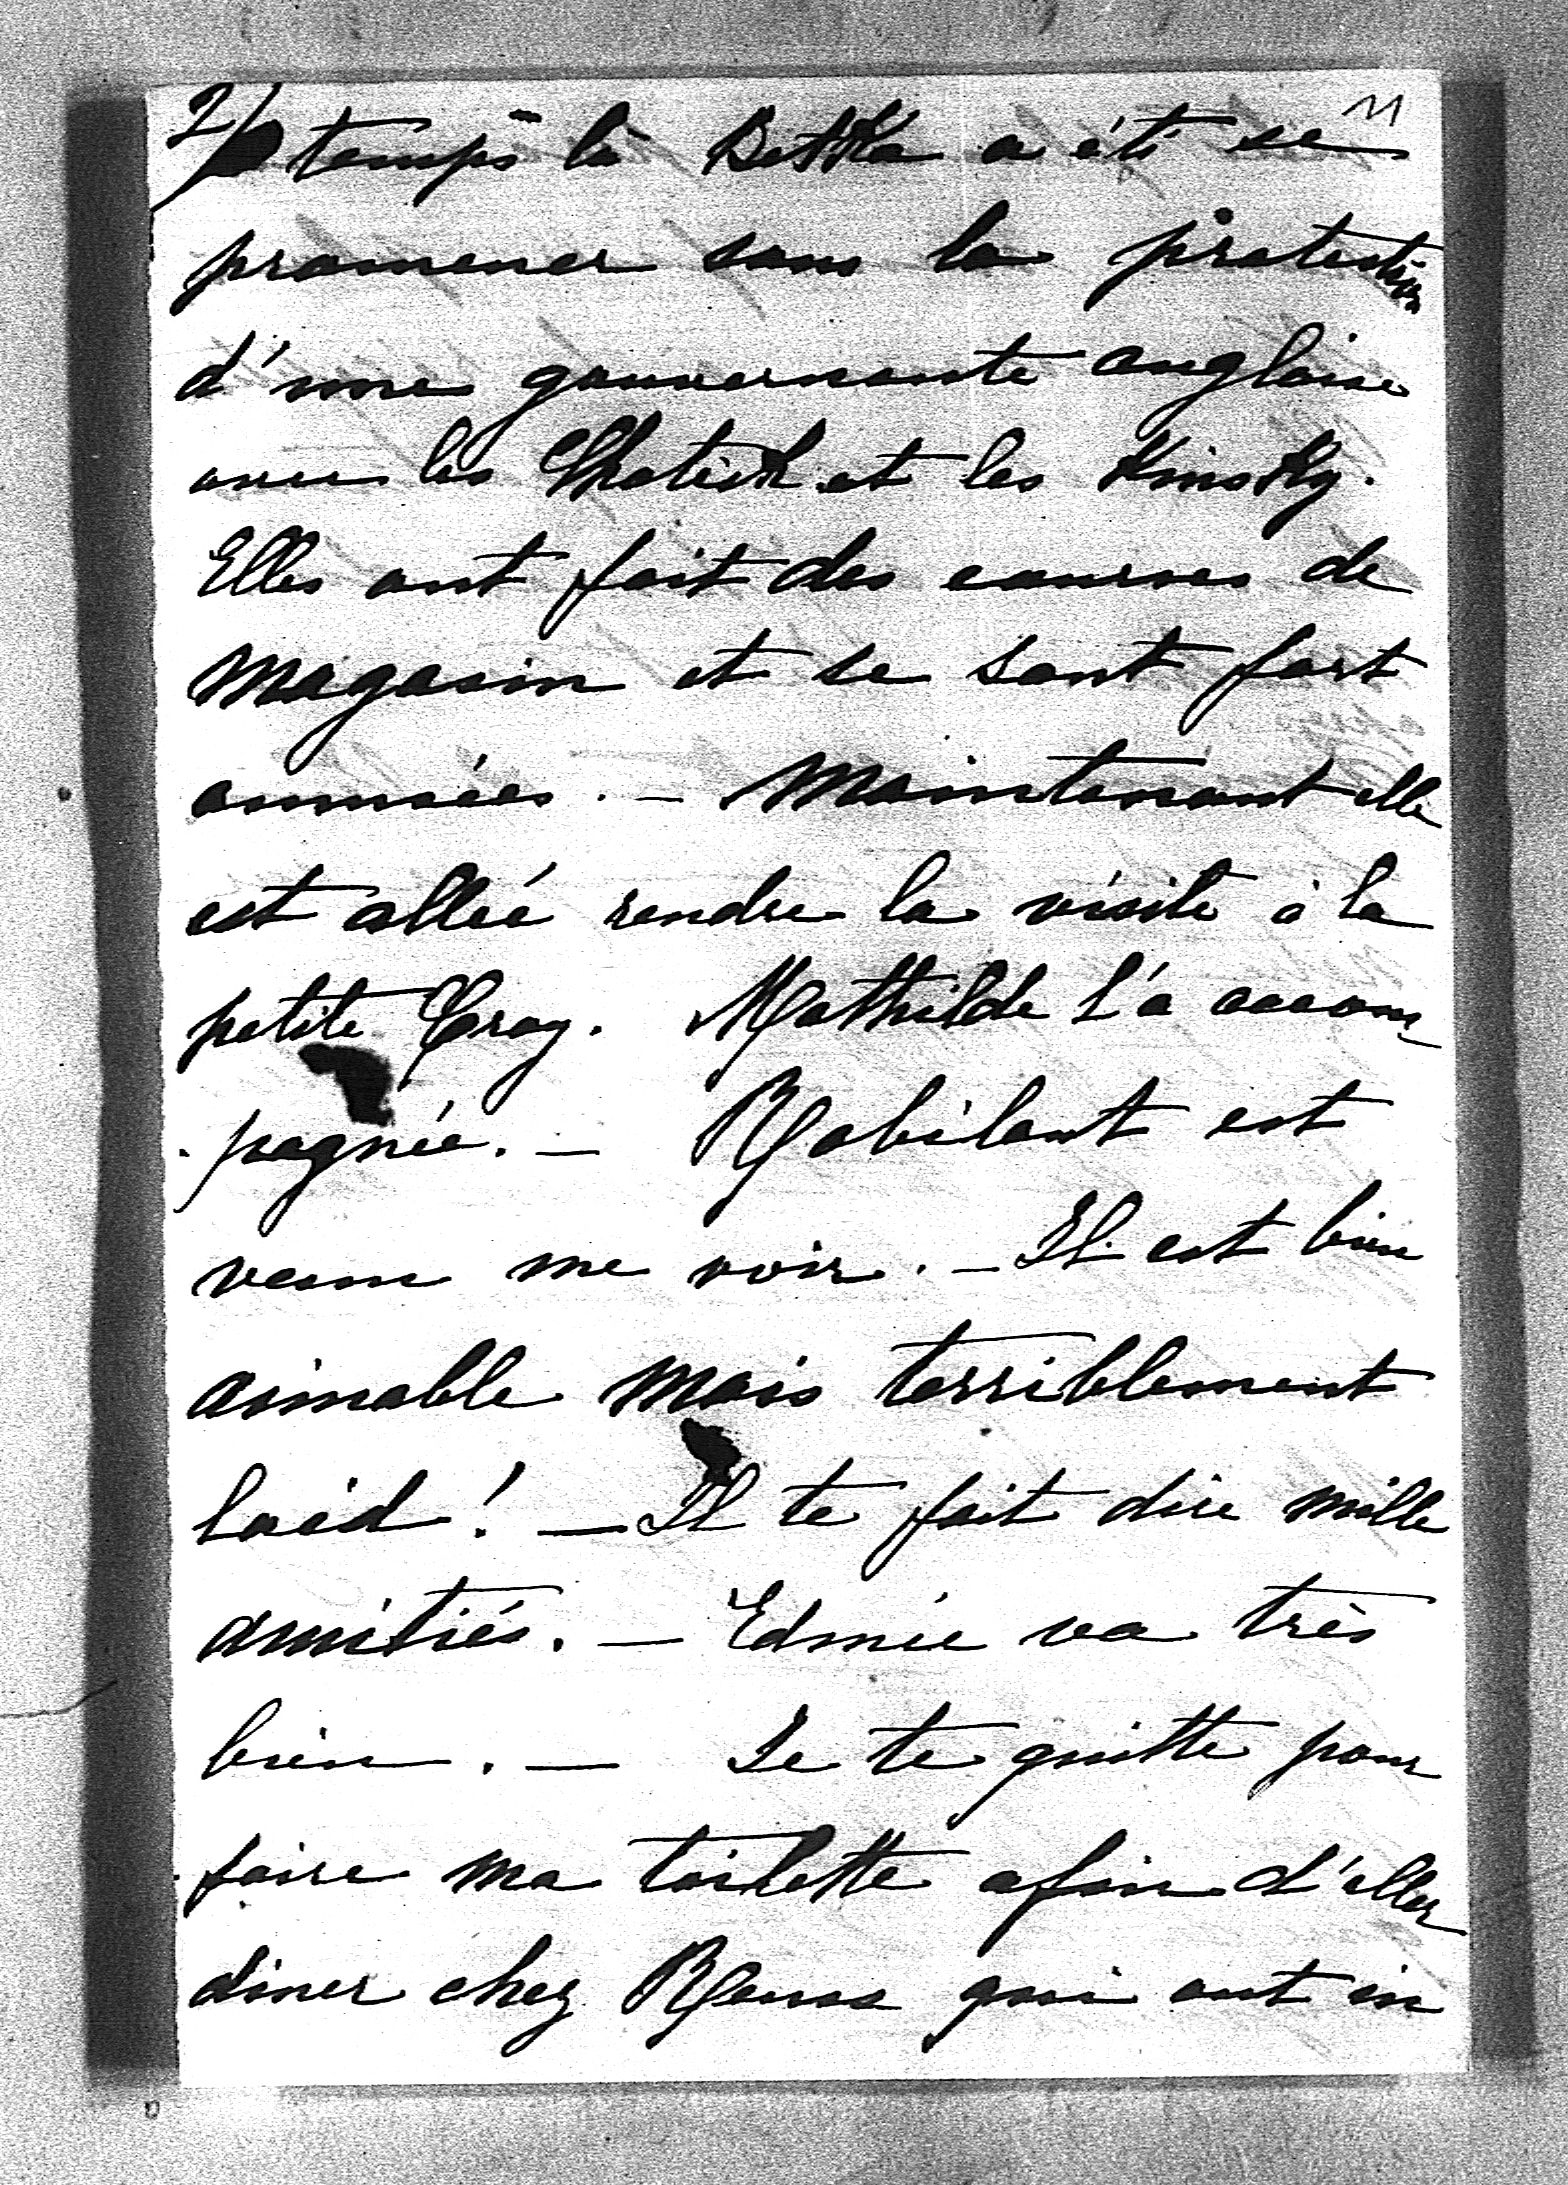 2/ 11
temps là Bettka a été se
promener sous la protection
d'une gouvernante anglaise
avec les Chotek et les Kinsky.
Elles ont fait des courses de
magasin et se sont fort
amusées. – Maintenant elle
est allée rendre la visite à la
petite Croy. Mathilde l'a accom
pagnée. – Robilant est
venu me voir. – Il est bien
aimable mais terriblement
laid! – Il te fait dire mille
amitiés. – Edmée va très
bien. – Je te quitte pour
faire ma toilette afin d'aller
diner chez Reuss qui ont in